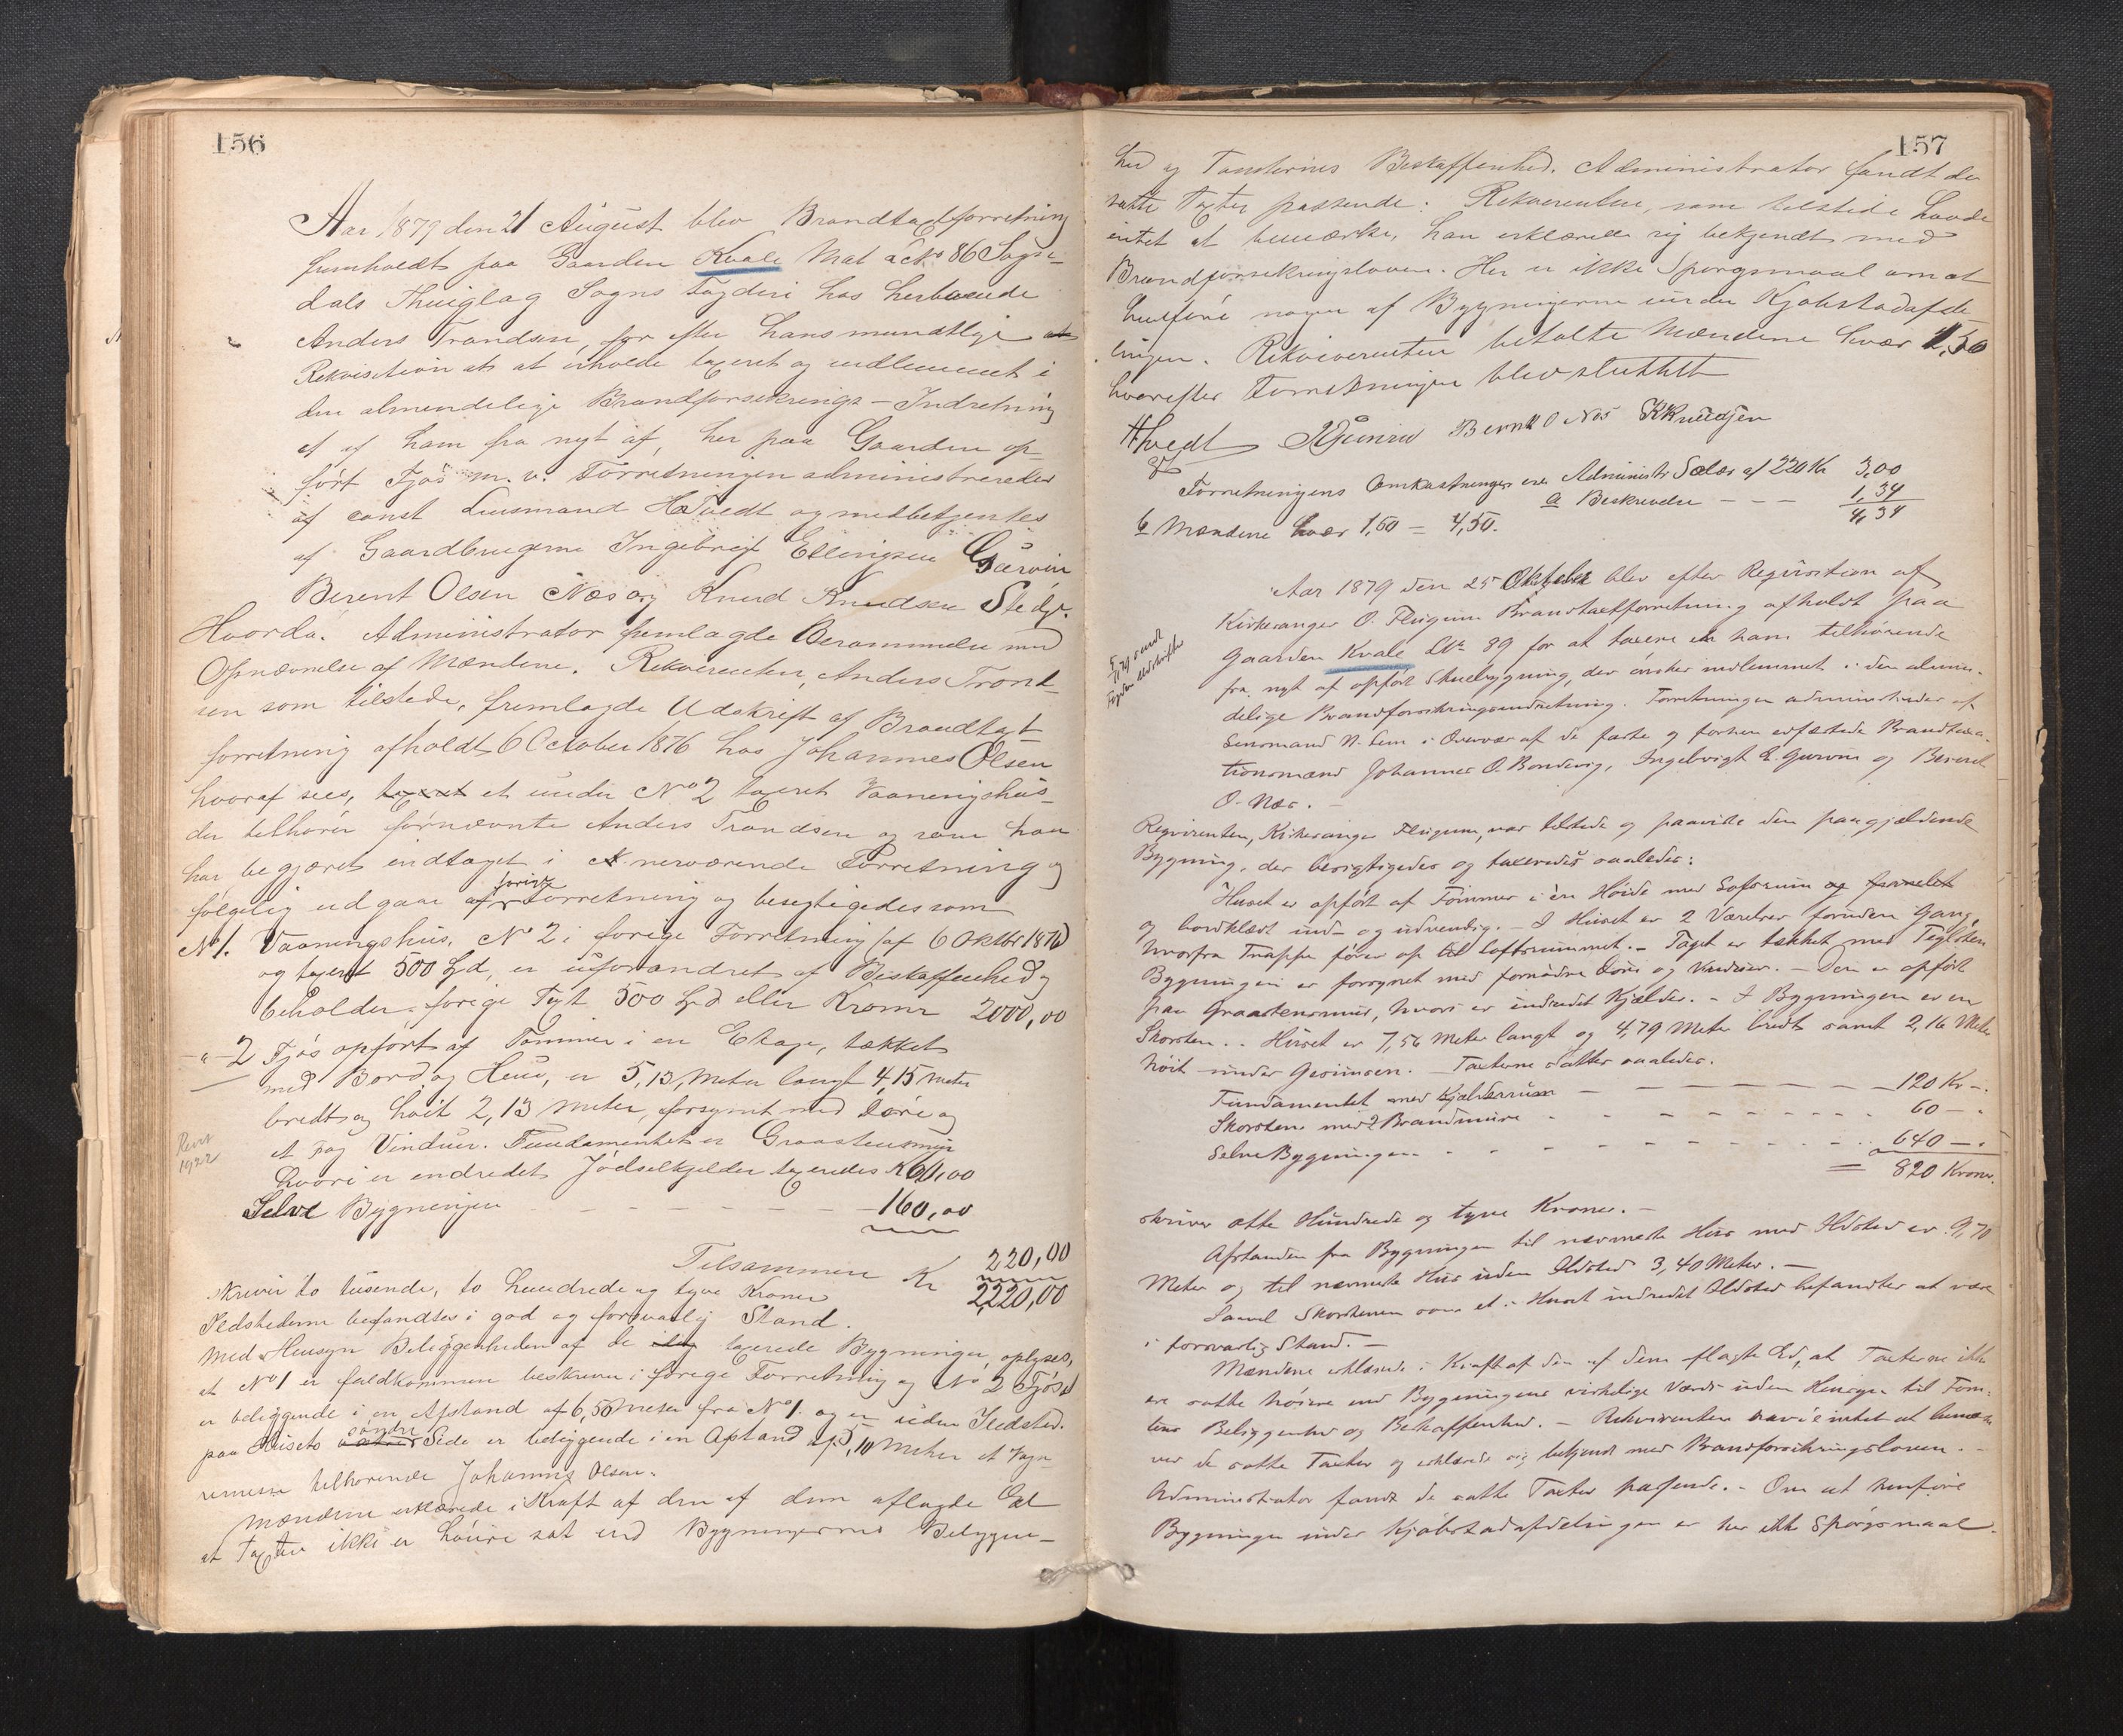 156
Aar 1879 den 21 August blev Brandtaxtforretning
fremholdt paa Gaarden Kvale Mat. No 86 Sogn-
dals Thinglag Sogns Fogderi hos herboende
Anders Trondsen for efter hans mundtlige
Rekvisition at erholde taxeret og indlemmet i
den almendelige Brandforsikrings-Indretning
et af ham fra nyt af, her paa Gaarden op-
fört Fjös m. v. Forretningen administreredes
af const Lensmand HTvedt og medbetjentes
af Gaardbrugerne Ingebrigt Ellingsen Gurvin
Berent Olsen Næs og Knud Knudsen Stedje.
Hvorda: Administrator fremlagde Berammelse med
Opnævnelse af Mændene. Rekvirenten, Anders Trond-
sen som tilstede, fremlagde Udskrift af Brandtaxt
forretning afholdt 6 October 1876 hos Johannes Olsen
hvoraf sees, taxeret et under No 2 taxeret Vaaningshus
der tilhörer fornævnte Anders Trondsen og som han
har begjæret indtaget i nerværende Forretning og
fölgelig udgaar af forige Forretning og besigtigedes som
No 1. Vaaningshus, No 2 i forige Forretning (af 6 Oktbr 1876)
og taxeret 500 Spd, er uforandret af Beskaffenhed og
beholder forige Taxt 500 Spd eller Kroner 2000,00
-"- 2 Fjös opfört af Tömmer i en Etage, tækket
med Bord og Heller, er 5,13 Meter langt 4,15 Meter
bredt og höit 2,13 Meter, forsynet med Döre og
et Fag Vinduer. Fundamentet er Graastensmur
hvori er indredet Jödselkjelder taxeredes K 60,00
Selve Bygningen - - - - - - 160,00
220,00
Tilsammen Kr 2220,00
skriver to tusende, to hundrede og tyve Kroner
Ildstederne befandtes i god og forsvarlig Stand.
Med Hensyn Beliggenheden af de taxerede Bygninger oplyses,
at No 1 er fuldkommen beskreven i forige Forretning og No 2 Fjöset
er beliggende i en Afstand af 6,50 Meter fra No 1. og er uden Ildsted.
paa Husets söndre Side er beliggende i en Afstand af 5,10 Meter et Vogn-
remisse tilhörende Johannes Olsen.
Mændene erklærede i Kraft af den af dem aflagte Ed
at Taxten ikke er höiere sat end Bygningernes Beliggen-
Revs
1922
157
hed og Tomternes Beskaffenhed. Administrator fandt de
satte Taxter passende: Rekvirenten, som tilstede havde
intet at bemærke, han erklærede sig bekjendt med
Brandforsikringsloven. Her er ikke Spörgsmaal om at
henföre nogen af Bygningerne under Kjöbstadafde-
lingen. Rekvirenten betalte Mændene hver 1,50
hvorefter Forretningen blev sluttet
HTvedt IEGurvin Bernt O Næs KKnudsen
Forretningens Omkostninger ere Administr Salær af 220 Kr 3,00
a Beskrivelse - - - 1,34
4,34
b Mændene hver 1,50 = 4,50.
Aar 1879 den 25 Oktober blev efter Requisition af
Kirkesanger O. Flugum Brandtaxtforretning afholdt paa
Gaarden Kvale LNr 89 for at taxere en ham tilhörende
fra nyt af opfört Stuebygning, der önskes indlemmet i den almin-
delige Brandforsikringsindretning. Forretningen administreredes af
Lensmand N. Lem i Overvær af de faste og forhen edfæstede Brandtaxa-
tionsmænd Johannes O. Bondevig, Ingebrigt E. Gurvin og Berent
O. Næs. -
Reqvirenten, Kirkesanger Flugum, var tilstede og paaviste den paagjældende
Bygning, der besigtigedes og taxeredes saaledes:
Huset er opfört af Tömmer i én Höide med Loftsrum og panelet
og bordklædt ind- og udvendig. - I Huset er 2 Værelser foruden Gang,
hvorfra Trappe förer op til Loftsrummet. - Taget er tækket med Teglsten
Bygningen er forsynet med fornödne Döre og Vinduer. - Den er opfört
paa Graastensmur, hvori er indredet Kjælder. - I Bygningen er en
Skorsten. - Huset er 7,56 Meter langt og 4,79 Meter bredt samt 2,16 Meter
höit under Gesimsen. - Taxterne sattes saaledes.
Fundamentet med Kjælderrum - - - - - - 120 Kr -.
Skorsten med 2 Brandmure - - - - - - 60 - .
Selve Bygningen - - - - - - 640 - .
= 820 Kroner.
skriver otte Hundrede og tyve Kroner. -
Afstanden fra Bygningen til nærmeste Hus med Ildsted er 9,70
Meter og til nærmeste Hus uden Ildsted 3,40 Meter. -
Saavel Skorstenen som et i Huset indredet Ildsted befandtes at være
i forsvarlig Stand. -
Mændene erklærede i Kraft af den af dem aflagte Ed, at Taxterne ikke
ere satte höiere end Bygningens virkelige Værdi uden Hensyn til Tom-
tens Beliggenhed og Beskaffenhed. - Rekvirenten havde intet at bemærke
ved de satte Taxter og erklærede sig bekjendt med Brandforsikringsloven. -
Administrator fandt de satte Taxter passende. - Om at henföre
Bygningen under Kjöbstadafdelingen er her ikke Spörgsmaal.